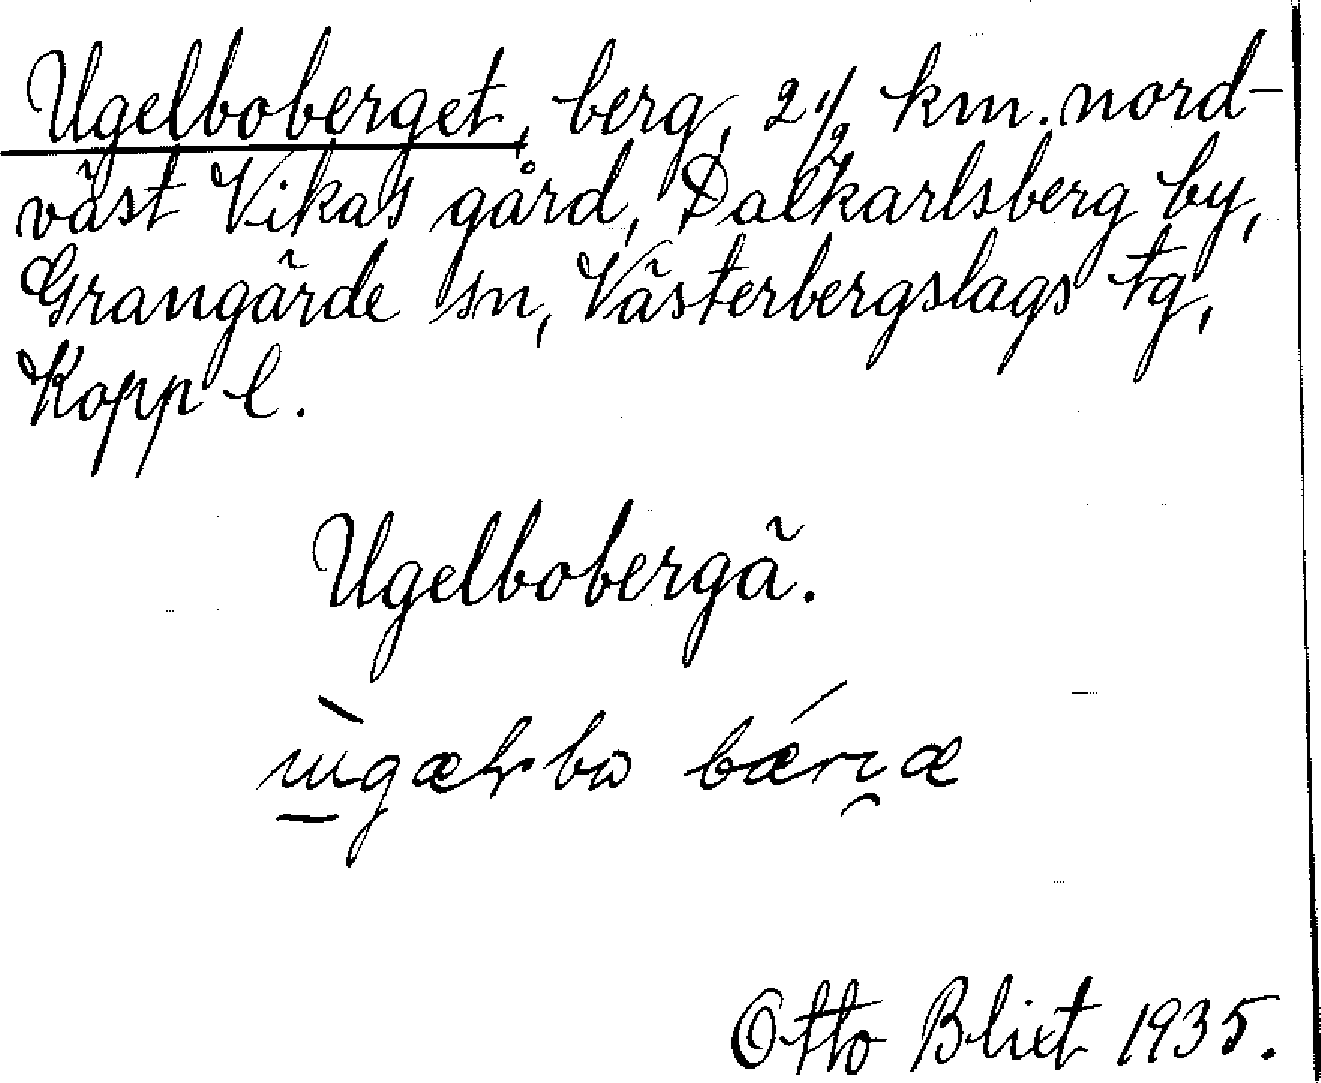 Ugelboberget, berg, 2 1/2 km. nord-
väst Vikas gård, Dalkarlsberg by,
Grangärde sn, Västerbergslags tg,
Kopp l.
Ugelbobergä.
Otto Blixt 1935.